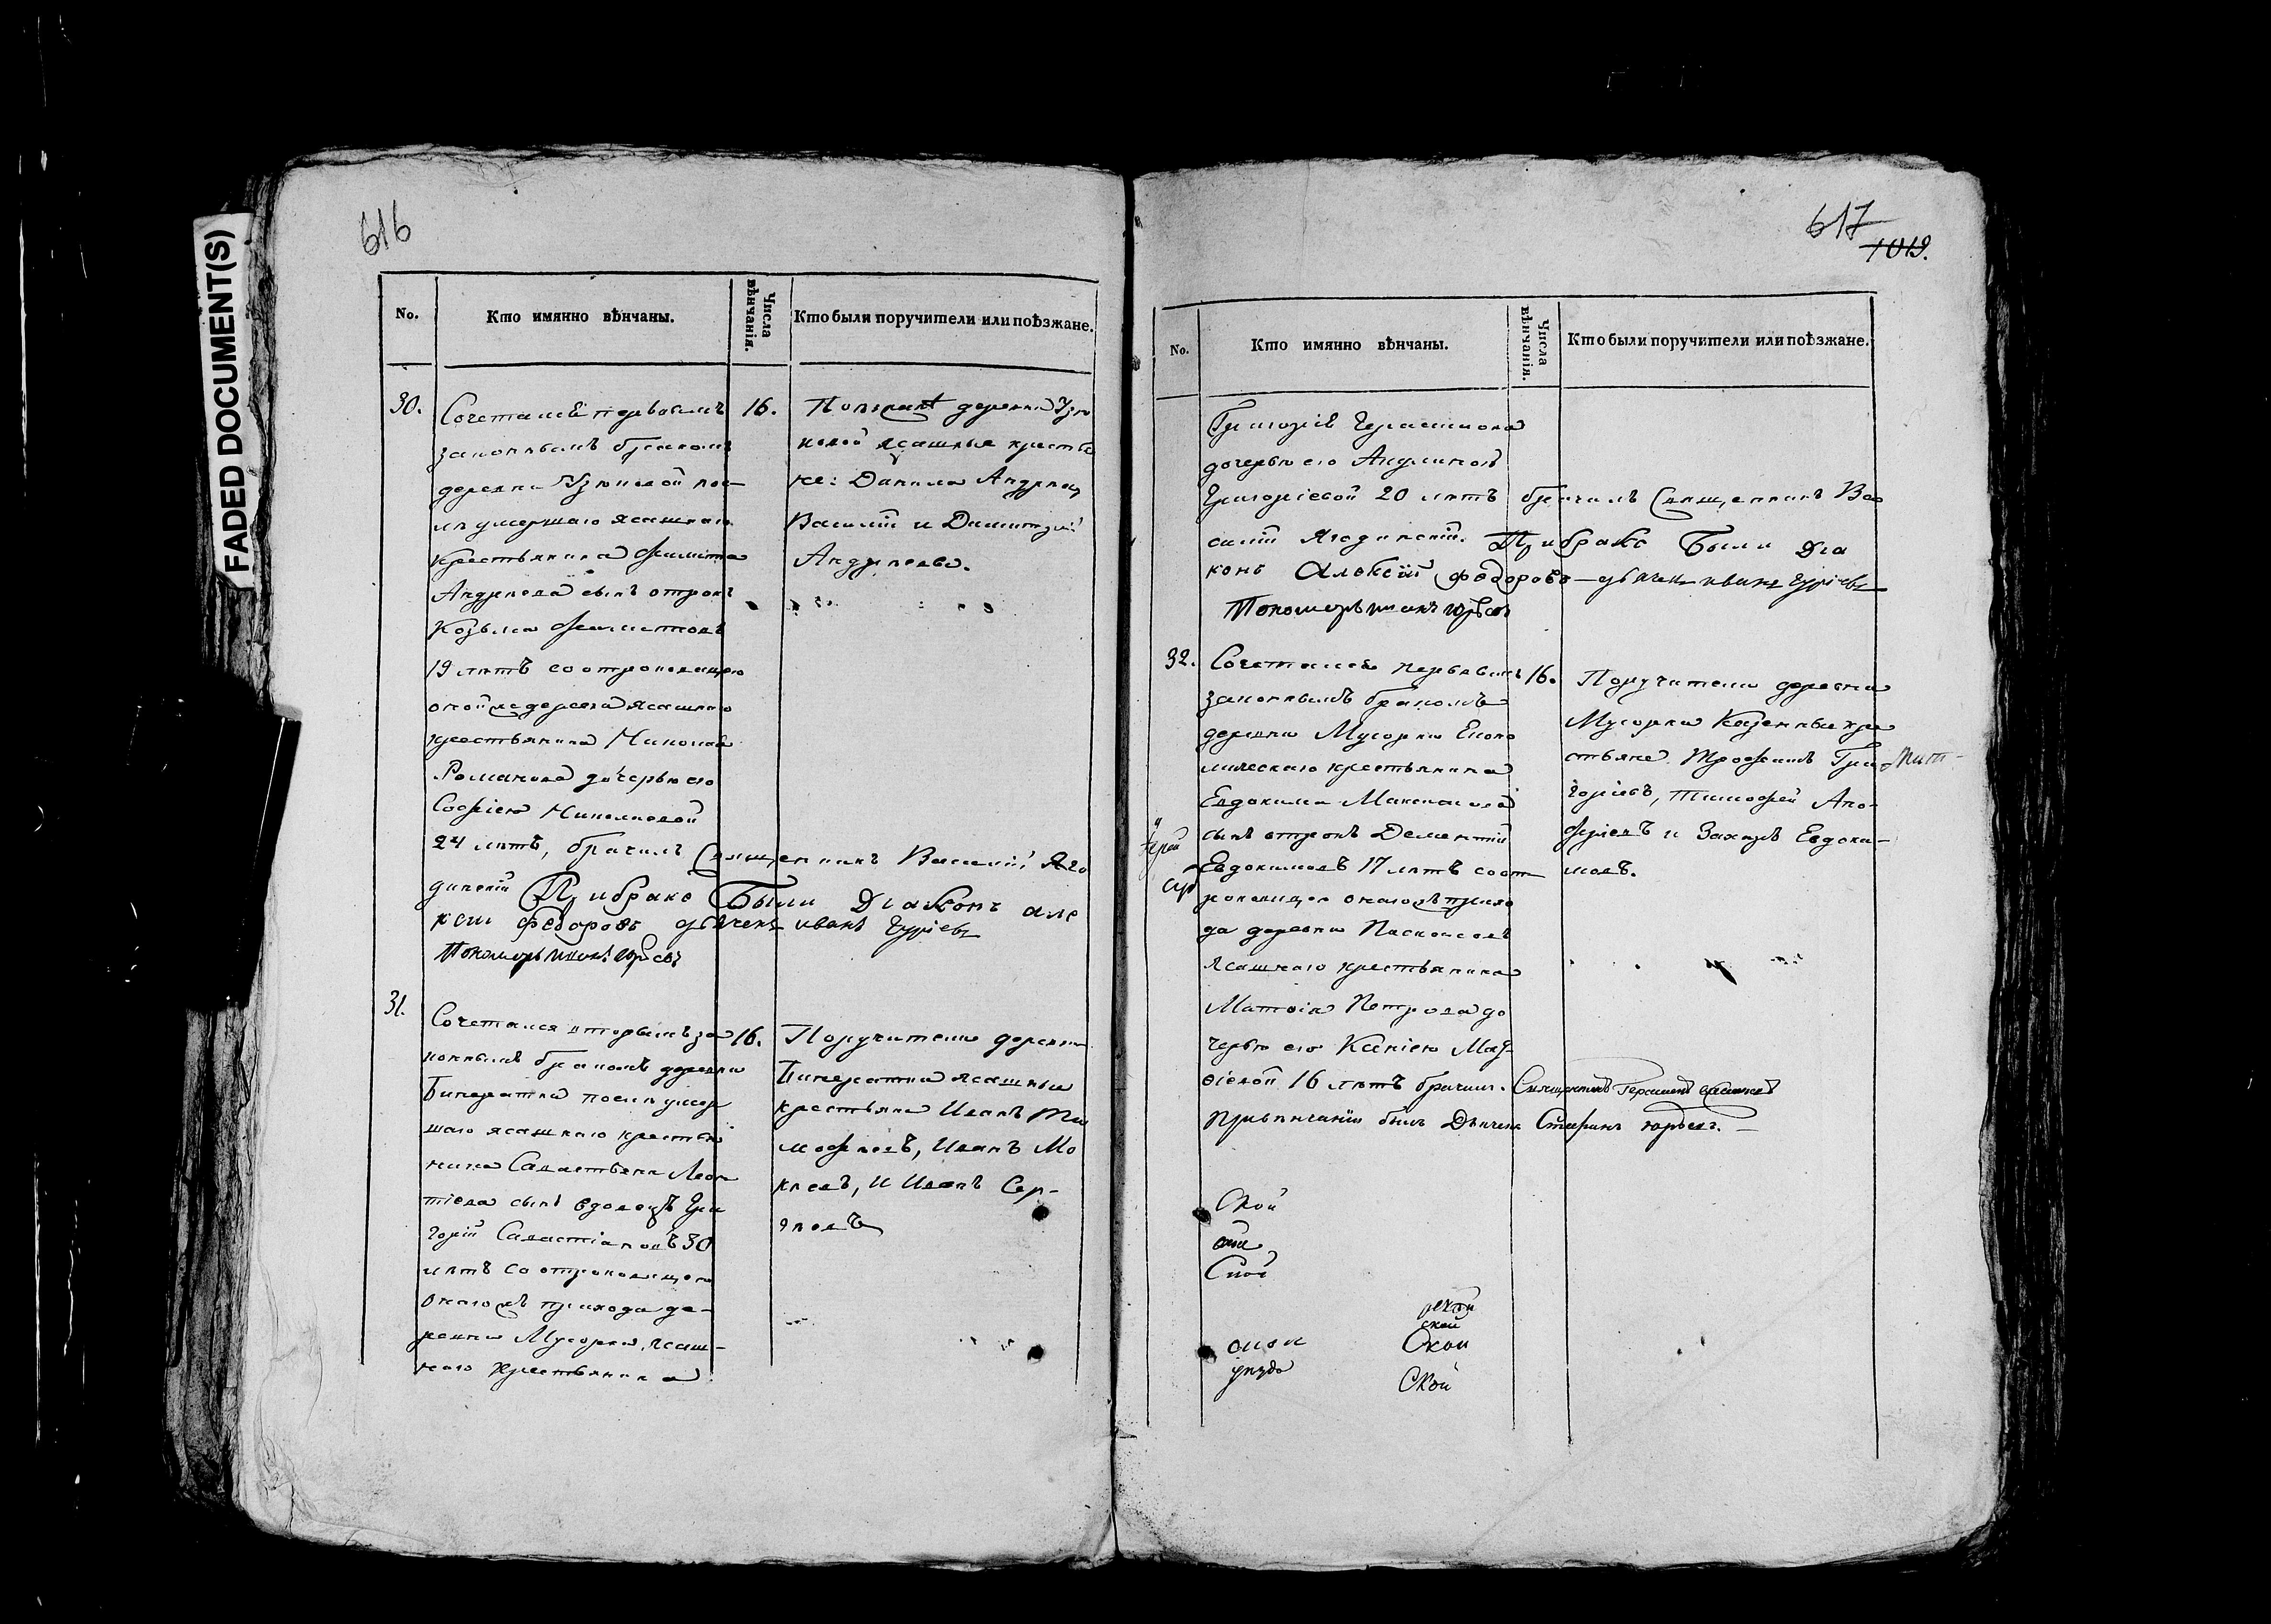 FADED DOCUMENT(S)
616
No.
Кто имянно вѣнчаны.
Числа вѣнчанія.
Кто были поручители или поѣзжане.
30.
Сочетался первымъ
законнымъ бракомъ
деревни Узюковой пос
лѣ умершаго ясашнаго
крестьянина Филипа
Андреева сынъ отрокъ
Козьма Филиповъ
19 лѣтъ со отроковицею
оной же деревни ясашнаго
крестьянина Николая
Романова дочерью его
Софіею Николаевой
24 лѣтъ, брачилъ Священникъ Василій Яго
динскій При браке Были Діаконъ але
ксій Федоровъ дьячекъ иванъ Гурiевъ
Пономарь
16.
деревни Узю
ковой ясашные крестья
не: Данила Андреевъ
Василій и Димитрій
Андреевы.
31.
Сочетался вторымъ за
коннымъ бракомъ деревни
послѣ умер
шаго ясашнаго крестья
нина Савастьяна Леон
тіева сынъ вдовецъ Гри
горій Савастіановъ 30
лѣтъ со отроковицею
онаго жъ прихода де-
ревни Мусорки, ясаш-
наго крестьянина
16.
Поручители деревни
ясашные
крестьяне Иванъ Ти
мофеевъ, Иванъ Мо
кеевъ, и Иванъ Сер-
геевъ
617
1019.
No.
Кто имянно вѣнчаны.
Числа вѣнчанія.
Кто были поручители или поѣзжане.
Григорія Герасимова
дочерью его Акулиной
Григоріевой 20 лѣтъ брачилъ Священникъ Ва
силій Ягодинскій. При браке Были Діа
конъ Алексій Федоровъ дьячекъ иванъ Гурiевъ
Пономарь
32.
Сочетался первымъ
законнымъ бракомъ
деревни Мусорки Еконо
мическаго крестьянина
Евдокима Максимова
сынъ отрокъ Дементій
Евдокимовъ 17 лѣтъ со от
роковицею онаго жъ прихо
да деревни
ясашнаго крестьянина
Матвія Петрова до
черью его Ксніею Мат
віевой 16 лѣтъ брачилъ. Священникъ Герасимъ
При вѣнчаніи былъ Дьячекъ Стефанъ Юрьевъ.
16.
Поручители деревни
Мусорки Казенные кре
стьяне Трофимъ Гри
горіевъ, Тимофей Ано-
фріевъ и Захаръ Евдоки-
мовъ.
Ской
Ской
Ской
Ской